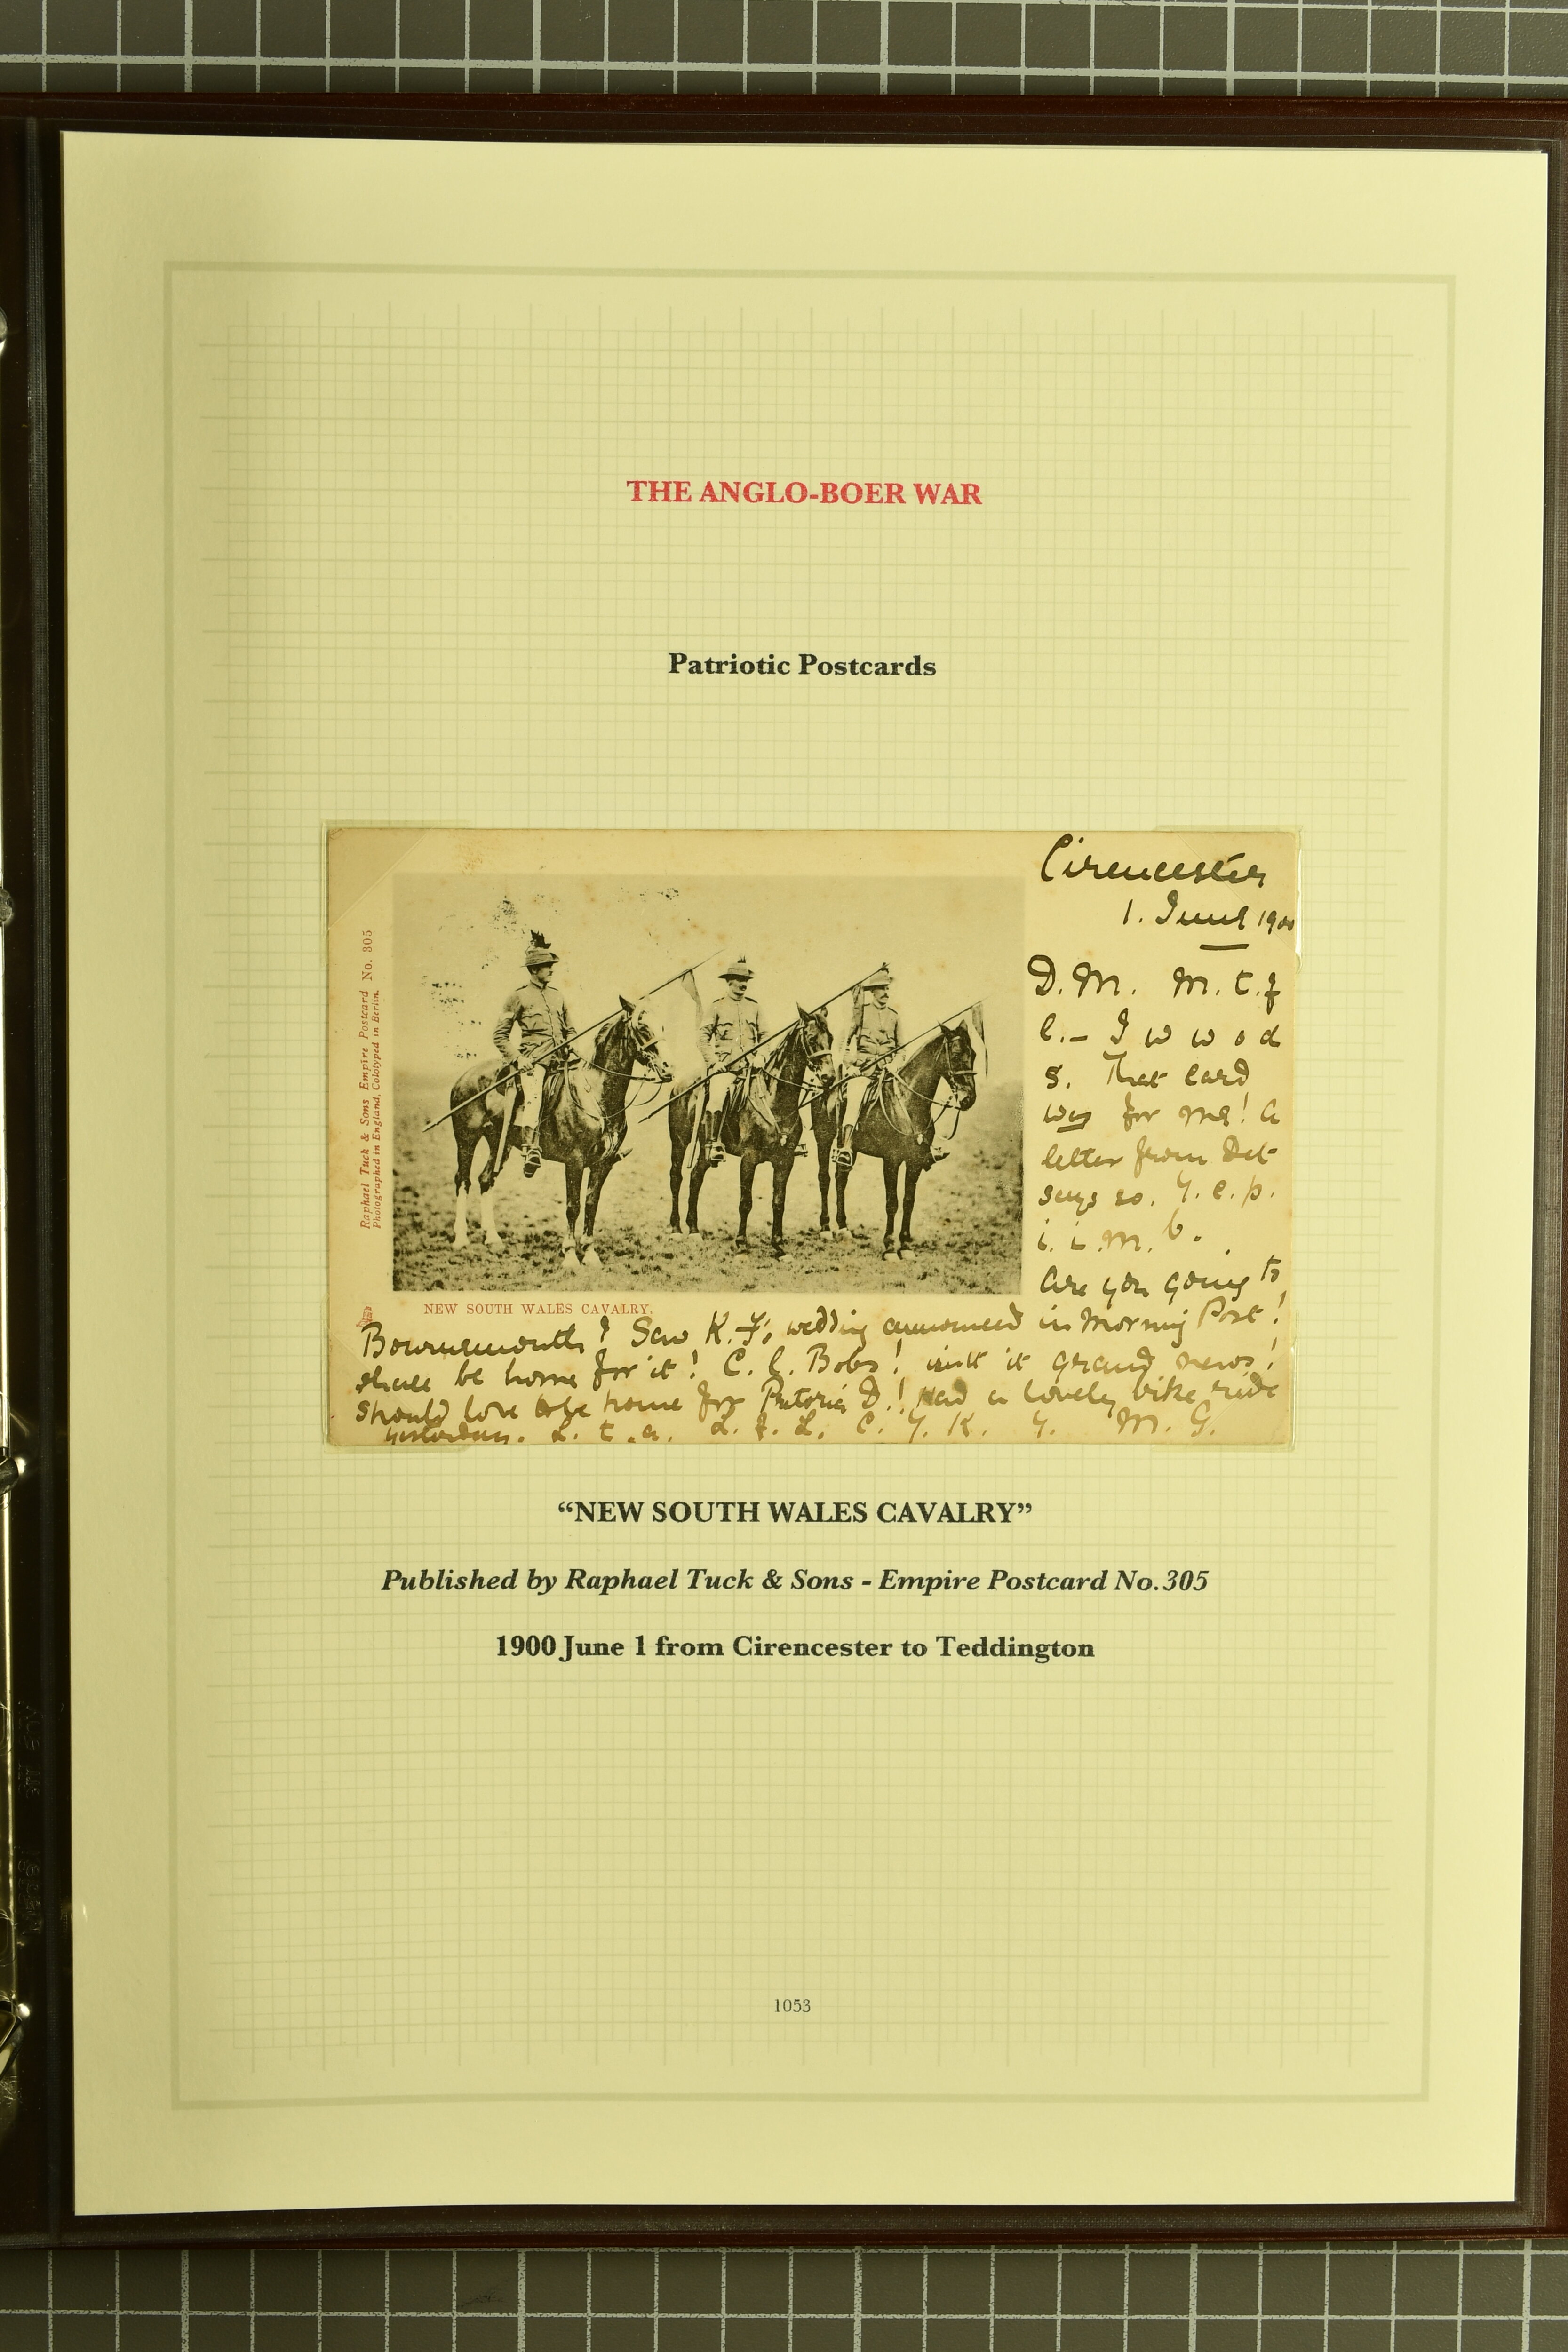 THE ANGLO-BOER WAR
Patriotic Postcards
Raphael Tuck & Sons Empire Postcard No. 305
Photographed in England, Colotyped in Berlin.
Cirencester
1. June 1900
D. M. M. t. f
l. - I w w o d
s. That card
was for me! A
letter from Det
says so. Y. e. p.
i. i. m. b.
Are you going to
NEW SOUTH WALES CAVALRY.
Bournemouth? Saw K. F's wedding announced in Morning Post!
shall be home for it! C. C. Bobs! isn't it grand news!
should love to be home for Pretoria D.! Had a lovely bike ride
yesterday. L. t. a. L. f. L. C. Y. K. Y. M. G.
“NEW SOUTH WALES CAVALRY”
Published by Raphael Tuck & Sons - Empire Postcard No.305
1900 June 1 from Cirencester to Teddington
1053